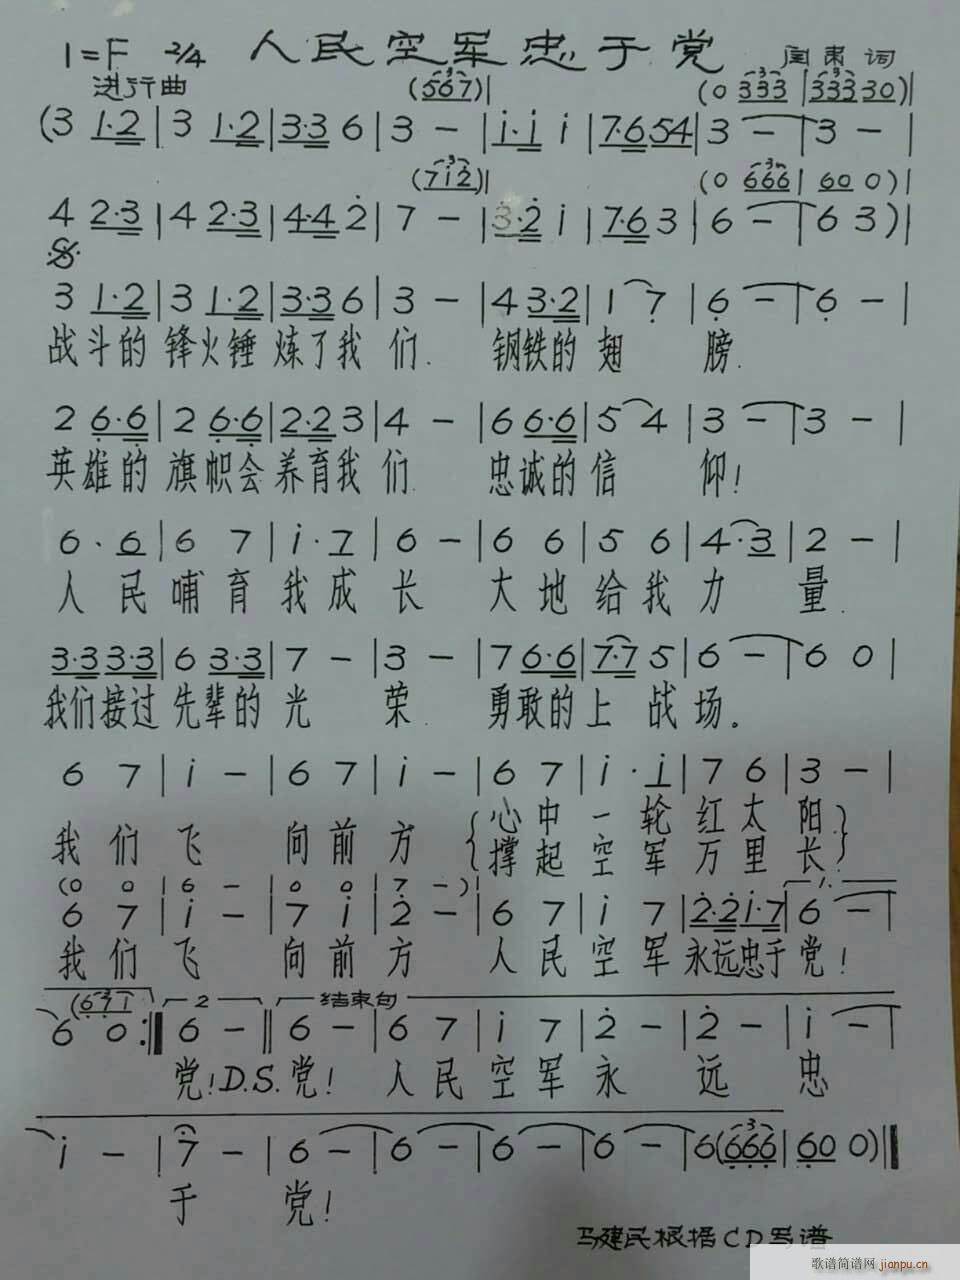 1=F 2/4 人民空军忠于党 闫肃 词
进行曲 (567)| (0 333|33330)|
(3 1·2|3 1·2|3·3 6|3 -|i·i i|7·654|3 -|3 -|
(712)| (0 666|60 0)|
4 2·3|4 2·3|4·4 2|7 -|3·2 i|7·6 3|6 -|6 3)|
3 1·2|3 1·2|3·3 6|3 -|4 3·2|1 7|6 -|6 -|
战斗的 锋火锤 炼了我 们. 钢铁的 翅 膀.
2 6·6|2 6·6|2·2 3|4 -|6 6·6|5 4|3 -|3 -|
英雄的 旗帜会 养育我 们 忠诚的 信 仰!
6 · 6|6 7|i · 7|6 -|6 6|5 6|4·3|2 -|
人 民 哺 育 我 成 长 大 地 给 我 力 量.
3·3 3·3|6 3·3|7 -|3 -|7 6·6|7·7 5|6 -|6 0|
我们接过 先辈的 光 荣. 勇敢的 上 战 场。
6 7|i -|6 7|i -|6 7|i · i|7 6|3 -|
心 中 一 轮 红 太 阳
我 们 飞 向 前 方
撑 起 空 军 万 里 长
(0 0|6 -|0 0|7 -)| 1.
6 7|i -|7 i|2 -|6 7|i 7|2·2 i·7|6 -|
我 们 飞 向 前 方 人 民 空 军 永远忠于 党!
(671) 2 结束句
6 0:|6 -||6 -|6 7|i 7|2 -|2 -|i -|
党! D.S. 党! 人 民 空 军 永 远 忠
i -|7 -|6 -|6 -|6 -|6 -|6(666|60 0)||
于 党!
马建民根据CD写谱
歌谱简谱网 jianpu.cn